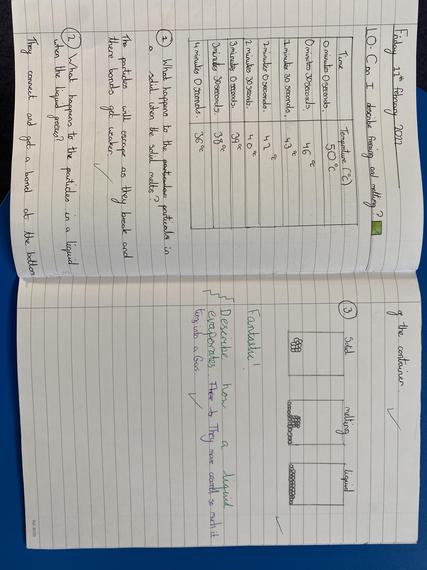 Friday 11th February 2022
LO: Can I describe freezing and melting?
Time Temperature (°C)
0 minutes 0 seconds. 50°C
0 minutes 30 seconds. 46°C
1 minutes 30 seconds. 43°C
2 minutes 0 seconds. 42°C
2 minutes 30 seconds. 40°C
3 minutes 0 seconds. 39°C
3 minutes 30 seconds. 38°C
4 minutes 0 seconds. 36°C
① What happens to the particals in
a solid when the solid melts?
The particles will escape as they break and
there bonds get weaker.
② What happens to the particles in a liquid
when the liquid
They connect and get a bond at the bottom
of the container.
③ Solid melting liquid
Fantastic!
Describe how a liquid
evaporates. They move around so much it
turns into a Gas.